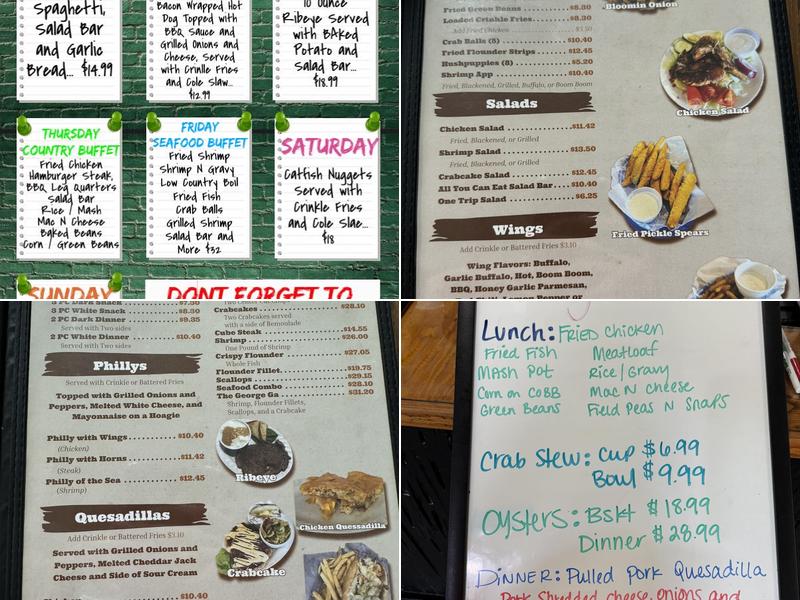 Spaghetti,
Salad Bar
and Garlic
Bread... $14.99
Bacon Wrapped Hot
Dog Topped with
BBQ Sauce and
Grilled Onions and
Cheese, Served
with Crinkle Fries
and Cole Slaw...
$12.99
10 Ounce
Ribeye Served
with BAked
Potato and
Salad Bar...
$18.99
THURSDAY
COUNTRY BUFFET
Fried Chicken
Hamburger Steak,
BBQ, Leg Quarters
Salad Bar
Rice / Mash
Mac N Cheese
Baked Beans
Corn / Green Beans
FRIDAY
SEAFOOD BUFFET
Fried Shrimp
Shrimp N Gravy
Low Country Boil
Fried Fish
Crab Balls
Grilled Shrimp
Salad Bar and
More $32
SATURDAY
Catfish Nuggets
Served with
Crinkle Fries
and Cole Slae...
$18
SUNDAY
DONT FORGET TO
Fried Green Beans $8.30
Loaded Crinkle Fries $8.30
Add Fried Chicken
Crab Balls (5) $10.40
Fried Flounder Strips $12.45
Hushpuppies (8) $5.20
Shrimp App $10.40
Fried, Blackened, Grilled, Buffalo, or Boom Boom
Bloomin Onion
Salads
Chicken Salad $11.42
Fried, Blackened, or Grilled
Shrimp Salad $13.50
Fried, Blackened, or Grilled
Crabcake Salad $12.45
All You Can Eat Salad Bar $10.40
One Trip Salad $6.25
Chicken Salad
Fried Pickle Spears
Wings
Add Crinkle or Battered Fries $3.10
Wing Flavors: Buffalo,
Garlic Buffalo, Hot, Boom Boom,
BBQ, Honey Garlic Parmesan,
3 PC Dark Snack $7.30
3 PC White Snack $8.30
2 PC Dark Dinner $9.35
Served with Two sides
2 PC White Dinner $10.40
Served with Two sides
Phillys
Served with Crinkle or Battered Fries
Topped with Grilled Onions and
Peppers, Melted White Cheese, and
Mayonnaise on a Hoagie
Philly with Wings $10.40
(Chicken)
Philly with Horns $11.42
(Steak)
Philly of the Sea $12.45
(Shrimp)
Quesadillas
Add Crinkle or Battered Fries $3.10
Served with Grilled Onions and
Peppers, Melted Cheddar Jack
Cheese and Side of Sour Cream
$10.40
Crabcakes $28.10
Two Crabcakes served
with a side of Remoulade
Cube Steak $14.55
Shrimp $26.00
One Pound of Shrimp
Crispy Flounder $27.05
Whole Fish
Flounder Fillet $19.75
Scallops $29.15
Seafood Combo $28.10
The George Ga $31.20
Shrimp, Flounder Fillets,
Scallops, and a Crabcake
Ribeye
Chicken Quessadilla
Crabcake
Lunch: FRiED chicken
Fried Fish Meatloaf
MAsh Pot Rice/Gravy
Corn on CoBB Mac N cheese
Green Beans Field Peas N SNAPS
Crab Stew: Cup $6.99
Bowl $9.99
Oysters: Bskt $18.99
Dinner $28.99
DiNNER: Pulled Pork Quesadilla
Pork, Shredded cheese, onions and